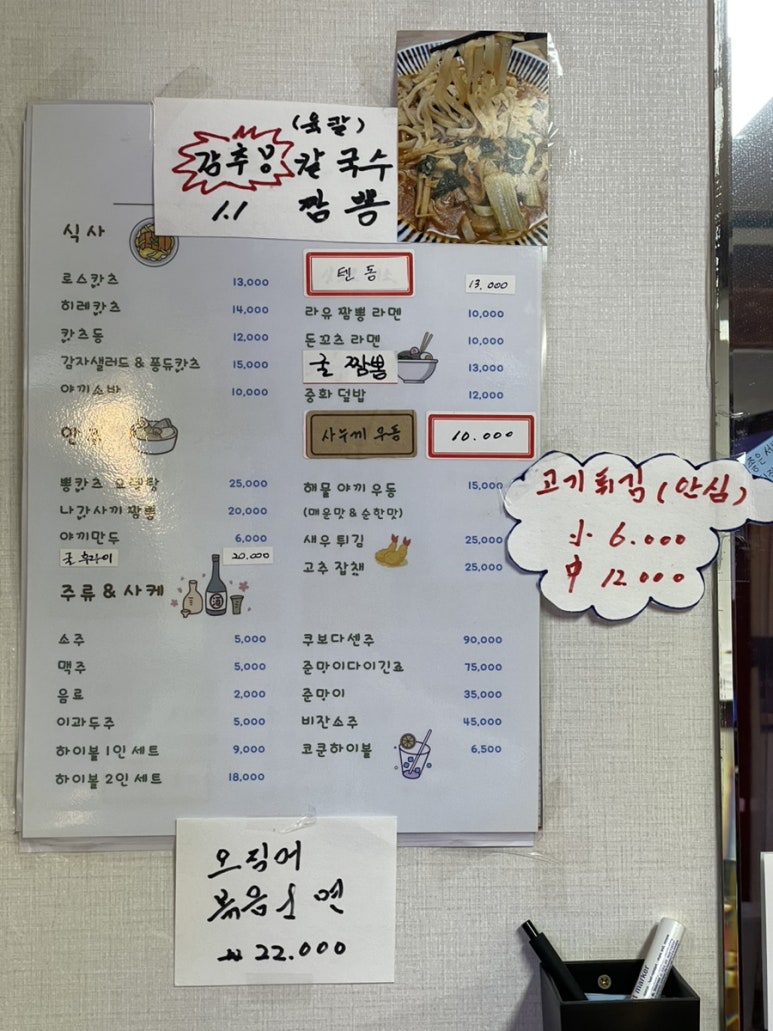 (육칼)
감추봉 칼국수
1.1 짬뽕
식사
로스캇츠 13,000
히레캇츠 14,000
캇츠동 12,000
감자샐러드 & 퐁듀캇츠 15,000
야끼소바 10,000
텐동 13,000
라유 짬뽕 라멘 10,000
돈꼬츠 라멘 10,000
굴 짬뽕 13,000
중화 덮밥 12,000
사누끼 우동 10.000
안주
뽕캇츠 오뎅탕 25,000
나가사끼 짬뽕 20,000
야끼만두 6,000
굴 후라이 20.000
해물 야끼 우동 15,000
(매운맛 & 순한맛)
새우 튀김 25,000
고추 잡챈 25,000
고기튀김 (안심)
小 6.000
中 12000
주류 & 사케
소주 5,000
맥주 5,000
음료 2,000
이과두주 5,000
하이볼 1인 세트 9,000
하이볼 2인 세트 18,000
쿠보다센주 90,000
준망이다이긴죠 75,000
준망이 35,000
비잔소주 45,000
코쿤하이볼 6,500
오징어
볶음소면
22.000
marker